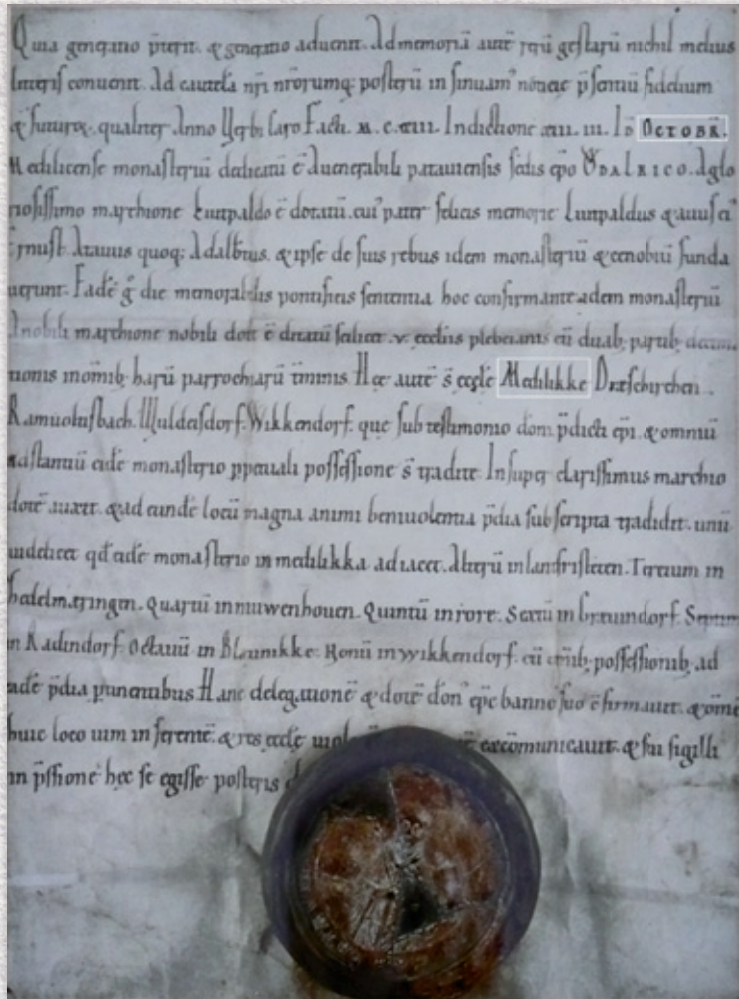 Quia generatio p̄terit. & generatio aduenit. Ad memoriā aut̄ rerū gestarū nichil melius
litteris conuenit. Ad cautelā nr̄i nr̄orumq; posterū insinuam' noticie p̄sentiū fidelium
& futuroꝝ. qualiter Anno Uerbi caro Facti. M. C. XIII. Indictione III. Id OCTOBR.
Medilicense monasteriū dedicatū ē A uenerabili patauiensis sedis ep̄o VDALRICO. A glo
riosissimo marchione Liutpaldo ē dotatū. cui' pater felicis memorie Liutpaldus & auus ei'
Ernust. Atauus quoq; Adalb̄tus. & ipse de suis rebus idem monasteriū & cenobiū funda
uerunt. Eadē g̊ die memorabilis pontificis sententia hoc confirmante idem monasteriū
A nobili marchione nobili dote ē ditatū scilicet .v. ecclīis plebeianis cū duab; partib; decima
tionis in om̄ib; harū parrochiarū t̄minis. Hec autē s̄ eccłe Medilikke Dreschirchen.
Ramuoltisbach. Mulderisdorf. Wikkendorf. que sub testimonio dom̄ p̄dicti ep̄i. & omniū
astantiū eidē monasterio p̄petuali possessione s̄ tradite. Insuper clarissimus marchio
dotē auxit. & ad eundē locū magna animi beniuolentia p̄dia subscripta tradidit. unū
uidelicet qd̄ eidē monasterio in medilikka adiacet. Alterū in landfristeten. Tertium in
hedelmaringen. Quartū in niuwenhouen. Quintū in rore. Sextū in breuindorf. Septim
in Radindorf. Octauū in Bleumikke. Nonū in Wikkendorf. cū om̄ib; possessionib; ad
eadē p̄dia p̄tinentibus Hanc delegationē & dotē don' ep̄c banno suo c̄firmauit. & om̄ē
huic loco uim inferentē. & res eccłe excōmunicauit. & sui sigilli
inp̄ssione hec se egisse posteris